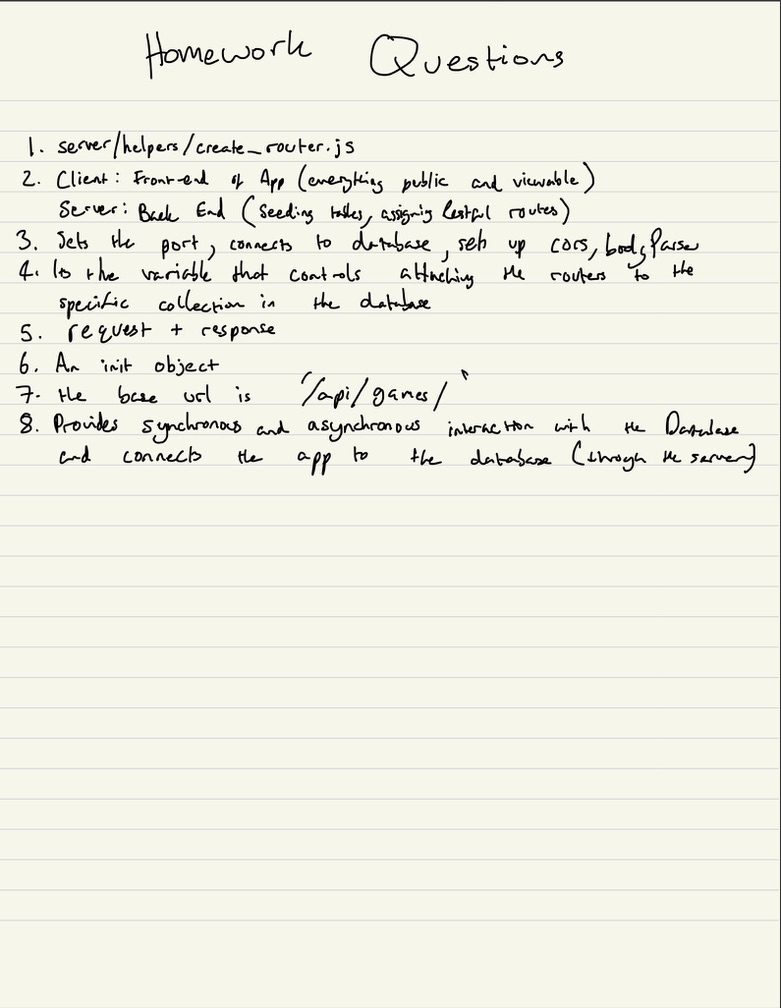 Homework Questions
1. server/helpers/create_router.js
2. Client: Front-end of App (everything public and viewable)
Server: Back End (Seeding tables, assigning Restful routes)
3. Sets the port, connects to database, sets up cors, bodyParser
4. Is the variable that controls attaching the routers to the
specific collection in the database
5. request + response
6. An init object
7. the base url is "/api/games/"
8. Provides synchronous and asynchronous interaction with the Database
and connects the app to the database (through the server)